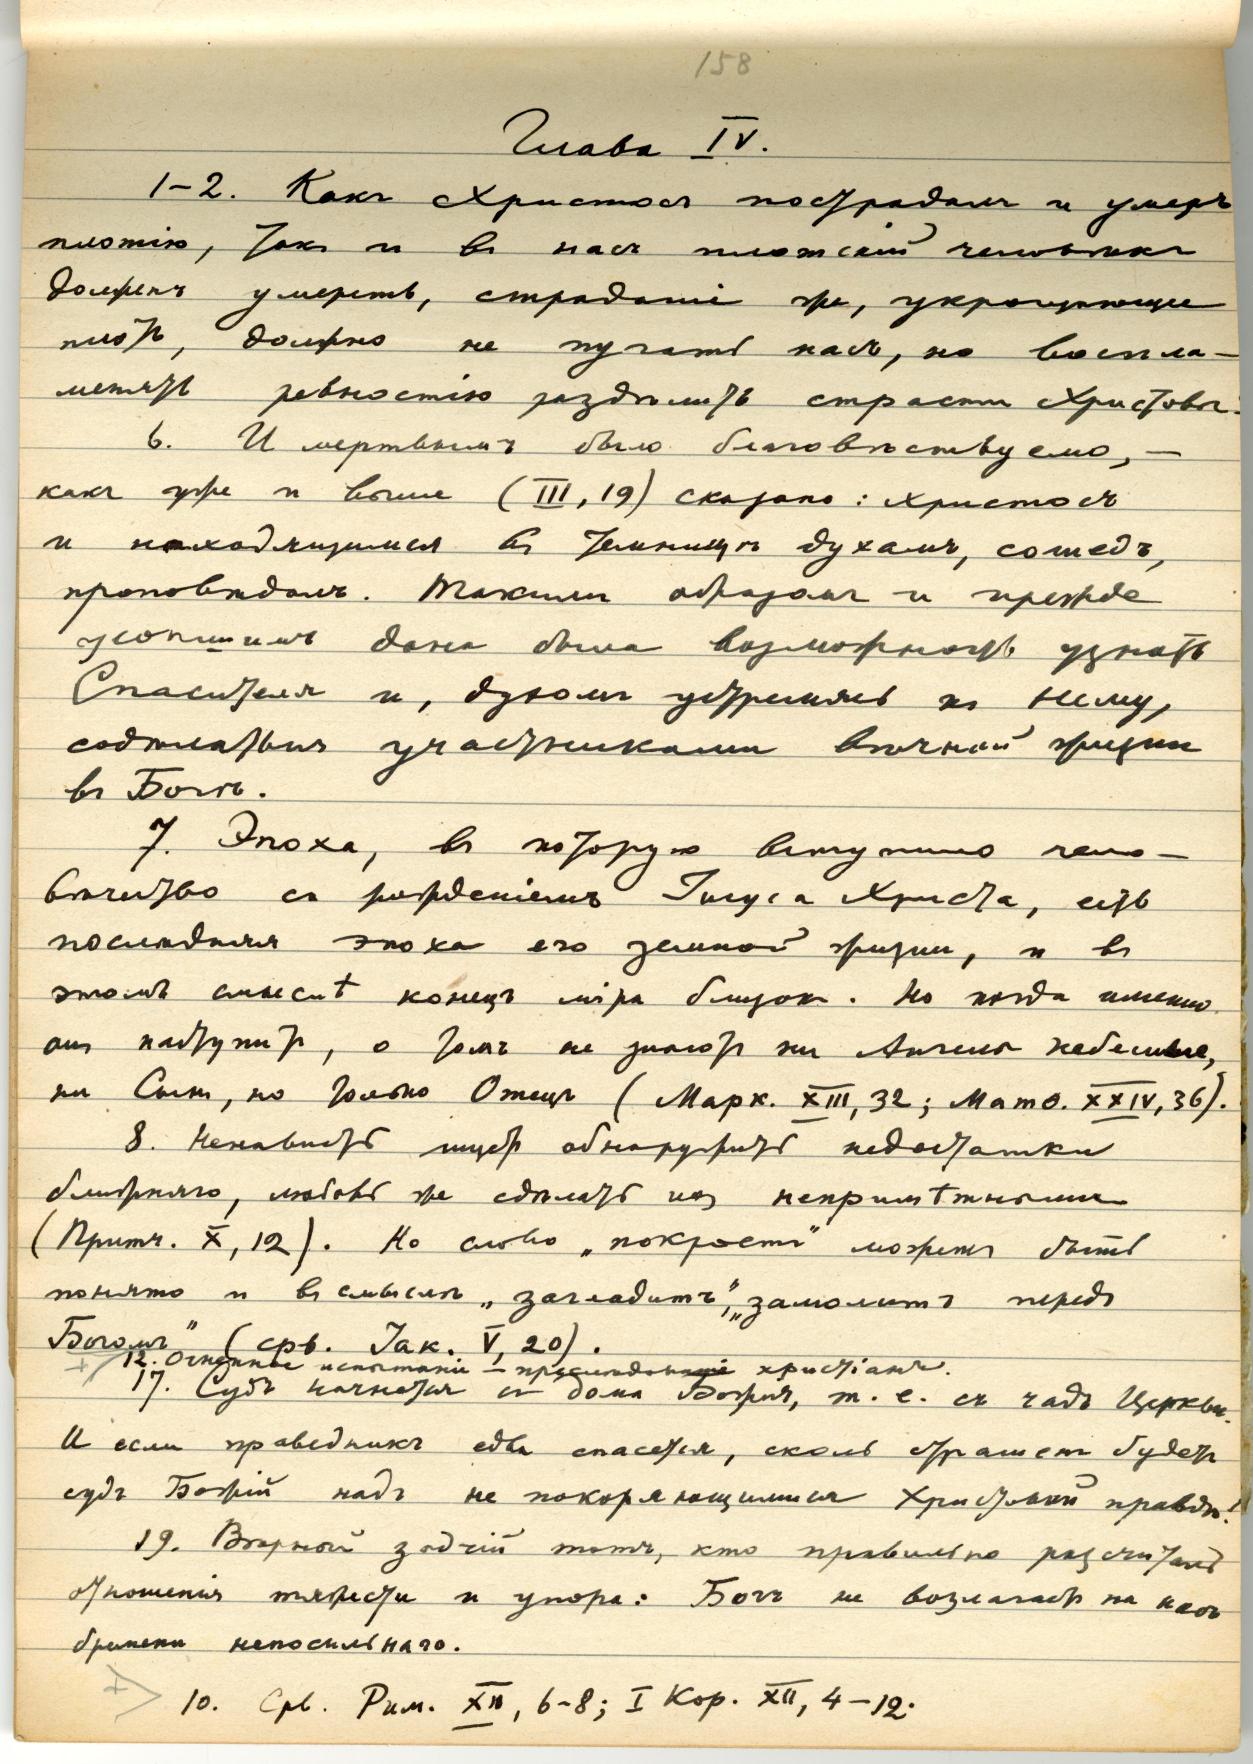 158
Глава IV.
1–2. Какъ Христосъ пострадалъ и умеръ
плотію, такъ и въ насъ плотскій человѣкъ
долженъ умереть, страданіе же, укрощающее
плоть, должно не пугать насъ, но воспла-
менять ревностію раздѣлить страсти Христовы.
6. И мертвымъ было благовѣствуемо, –
какъ уже и выше (III, 19) сказано: Христосъ
и находящимся въ темницѣ духамъ, сошедъ,
проповѣдалъ. Такимъ образомъ и прежде
усопшимъ дана была возможность узнать
Спасителя и, духомъ устремясь къ Нему,
содѣлаться участниками вѣчной жизни
въ Богѣ.
7. Эпоха, въ которую вступило чело-
вѣчество съ рожденіемъ Іисуса Христа, есть
послѣдняя эпоха его земной жизни, и въ
этомъ смыслѣ конецъ міра близокъ. Но когда именно
онъ наступитъ, о томъ не знаютъ ни Ангелы небесные,
ни Сынъ, но только Отецъ (Марк. XIII, 32; Матѳ. XXIV, 36).
8. Ненависть ищетъ обнаружить недостатки
ближняго, любовь же сдѣлать ихъ непримѣтными
(Притч. X, 12). Но слово „покроетъ" можетъ быть
понято и въ смыслѣ „загладитъ", „замолитъ передъ
Богомъ" (срв. Іак. V, 20).
12. Огненное испытаніе – преслѣдованіе христіанъ.
17. Судъ начнется съ дома Божія, т. е. съ чадъ Церкви.
И если праведникъ едва спасется, сколь страшенъ будетъ
судъ Божій надъ не покоряющимися Христовой правдѣ!
19. Вѣрный зодчій тотъ, кто правильно разсчиталъ
отношенія тяжести и упора: Богъ не возлагаетъ на насъ
бремени непосильнаго.
10. Срв. Рим. XII, 6–8; I Кор. XII, 4–12.